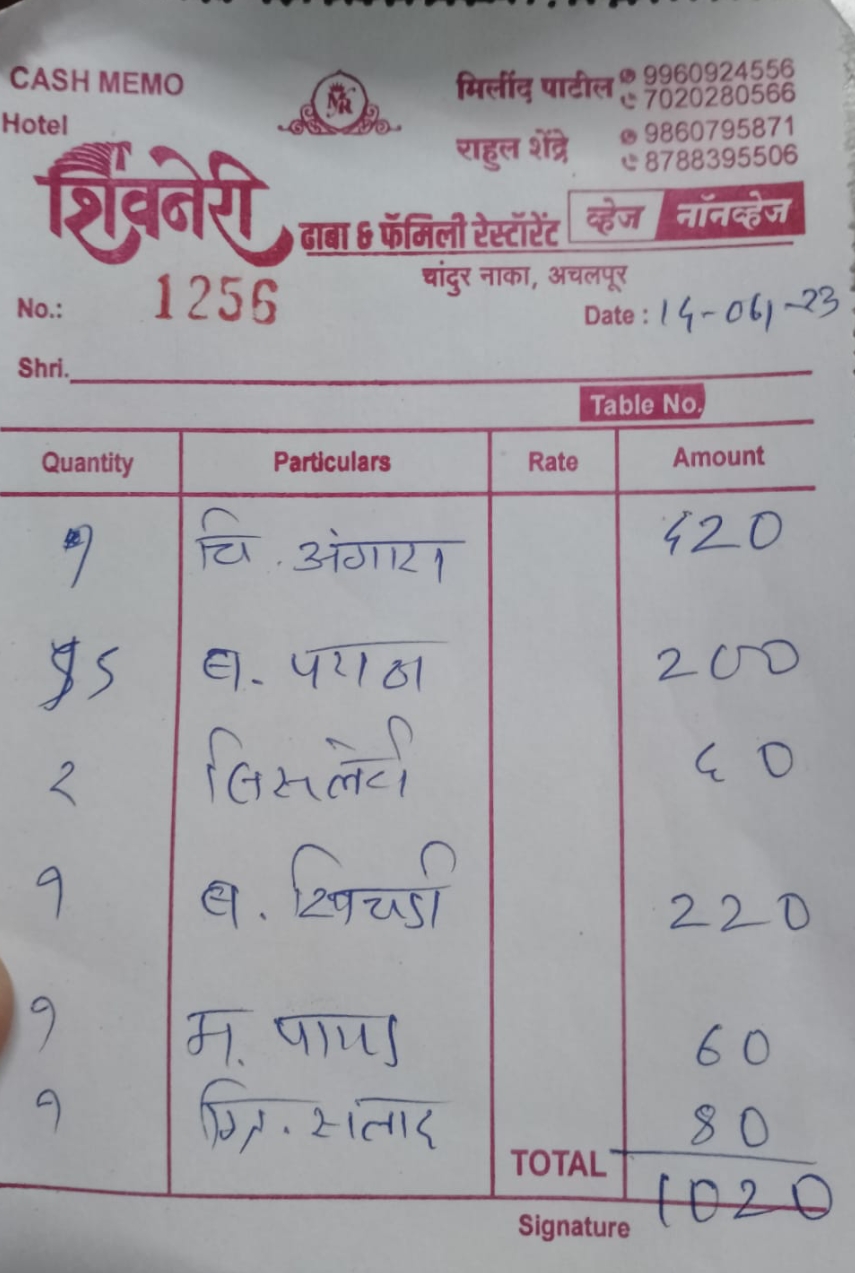 CASH MEMO
Hotel
NR
मिलींद पाटील 9960924556
7020280566
राहुल शेंद्रे 9860795871
8788395506
शिवनेरी
ढाबा & फॅमिली रेस्टॉरेंट व्हेज नॉनव्हेज
चांदुर नाका, अचलपूर
No.: 1256 Date : 14-06-23
Shri.
Table No.
Quantity Particulars Rate Amount
१ चि. अंगारा 420
5 ब. पराठा 200
२ बिसलेरी 40
१ ब. खिचडी 220
१ म. पापड 60
१ ग्रि. सलाद 80
TOTAL 1020
Signature